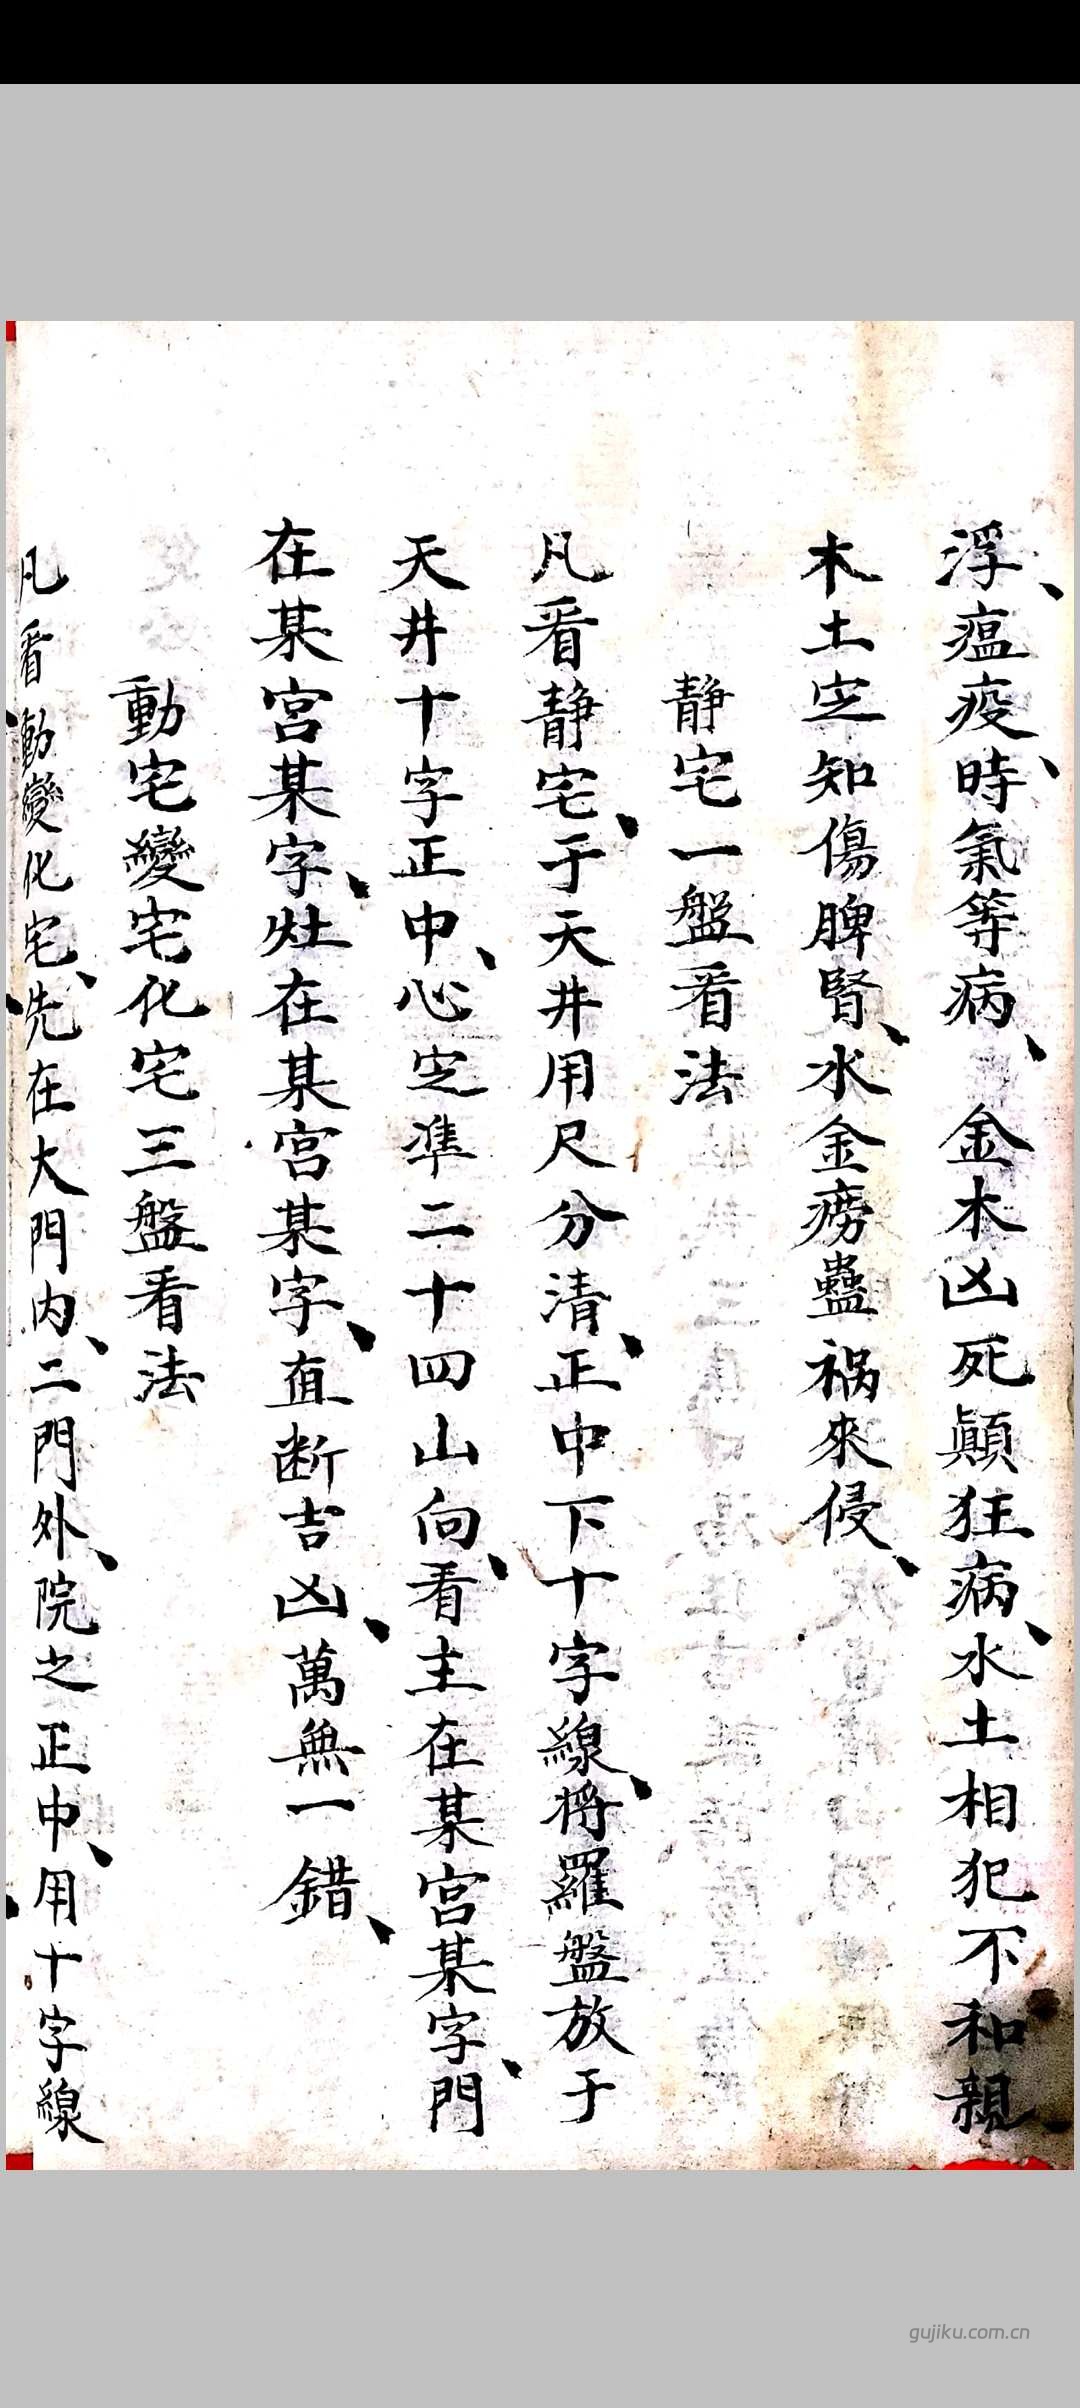 浮、瘟疫、時氣等病、金木凶死顛狂病、水土相犯不和親
木土定知傷脾腎、水金癆蠱禍來侵、
靜宅一盤看法
凡看靜宅、于天井用尺分清、正中下十字線、將羅盤放于
天井十字正中、心定準二十四山向、看主在某宮某字、門
在某宮某字、灶在某宮某字、直断吉凶、萬無一錯、
動宅變宅化宅三盤看法
凡看動變化宅、先在大門内、二門外、院之正中、用十字線
gujiku.com.cn